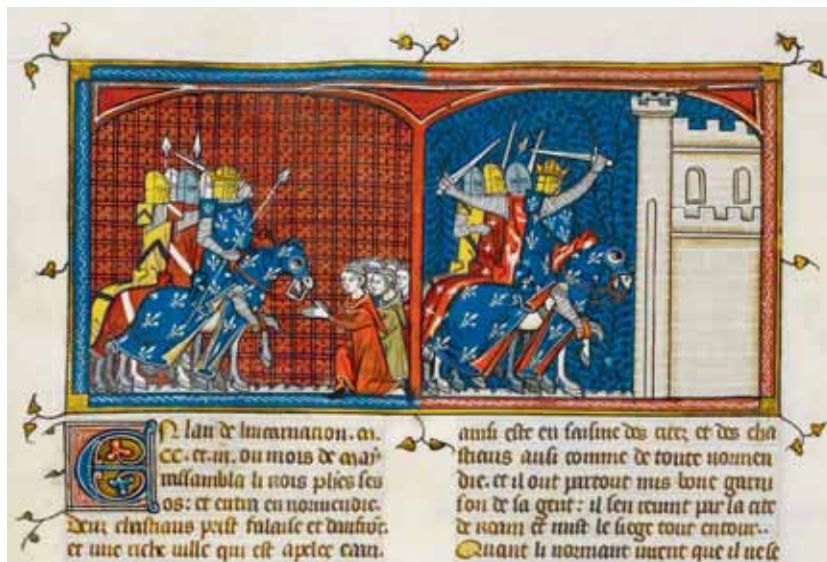 En lan de lincarnation .m.
CC. et .iii. ou mois de may
rassambla li rois ses
os: et entra en normendie.
Deux chastiaus prist falaise et danfront.
et une riche ville qui est apelee caan.
ainsi este en saisine des citez et des cha
stiaus ausi comme de toute normen
die. et il out partout mis bone garni
son de sa gent: il sen revint par la cite
de roam et mist le siege tout entour.
Quant li normant virent que il ne se